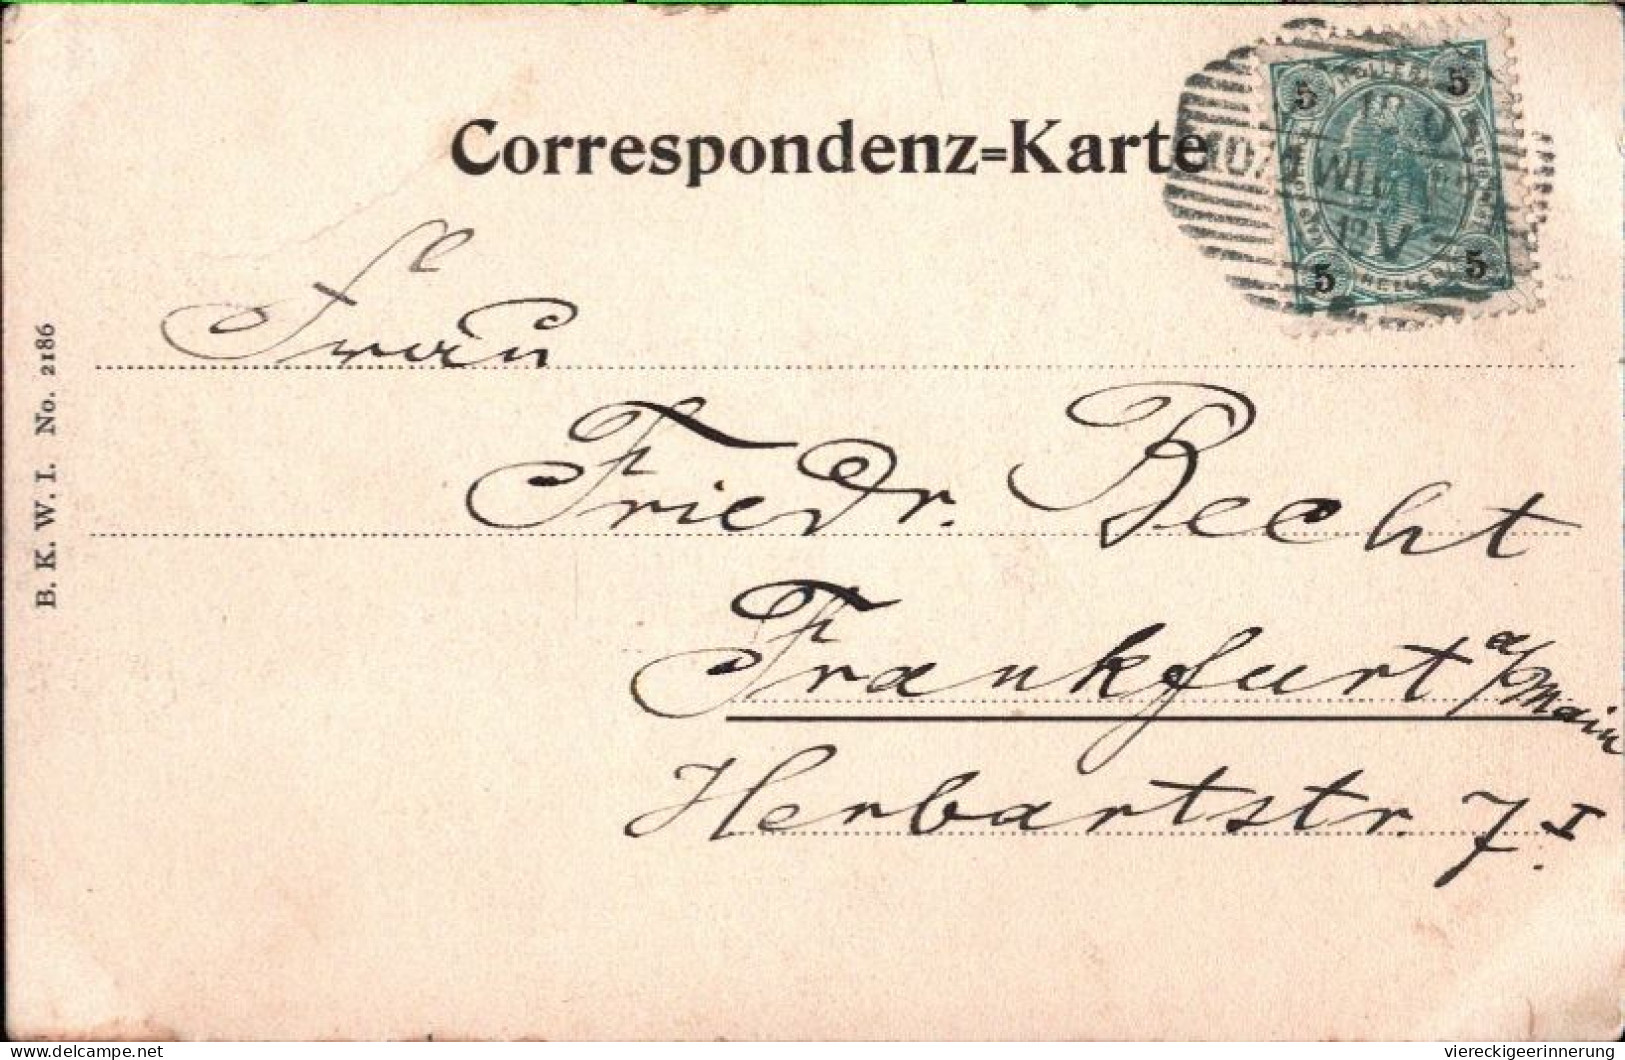 Correspondenz=Karte
5 5
5 5
10/1 WIEN
V
Frau
Friedr. Becht
Frankfurt a/Main
Herbartstr. 7 I.
B. K. W. I. No. 2186
delcampe.net
viereckigeerinnerung